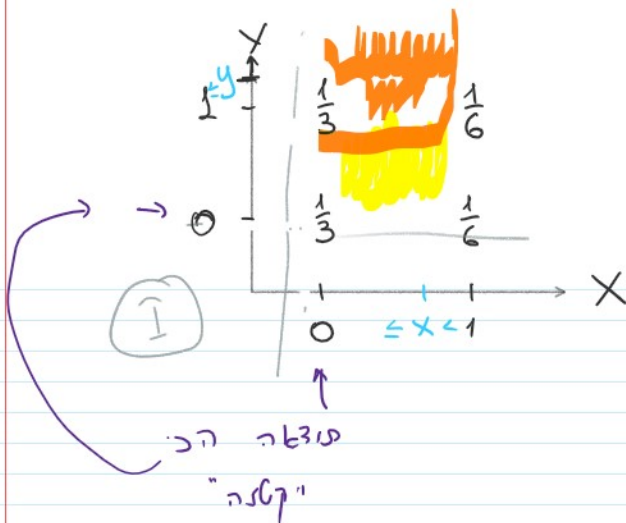 Y
1 ≤ y 1/3 1/6
→ 0 1/3 1/6
X
0 ≤ x < 1
I
תוצאה הכי
"קטנה"